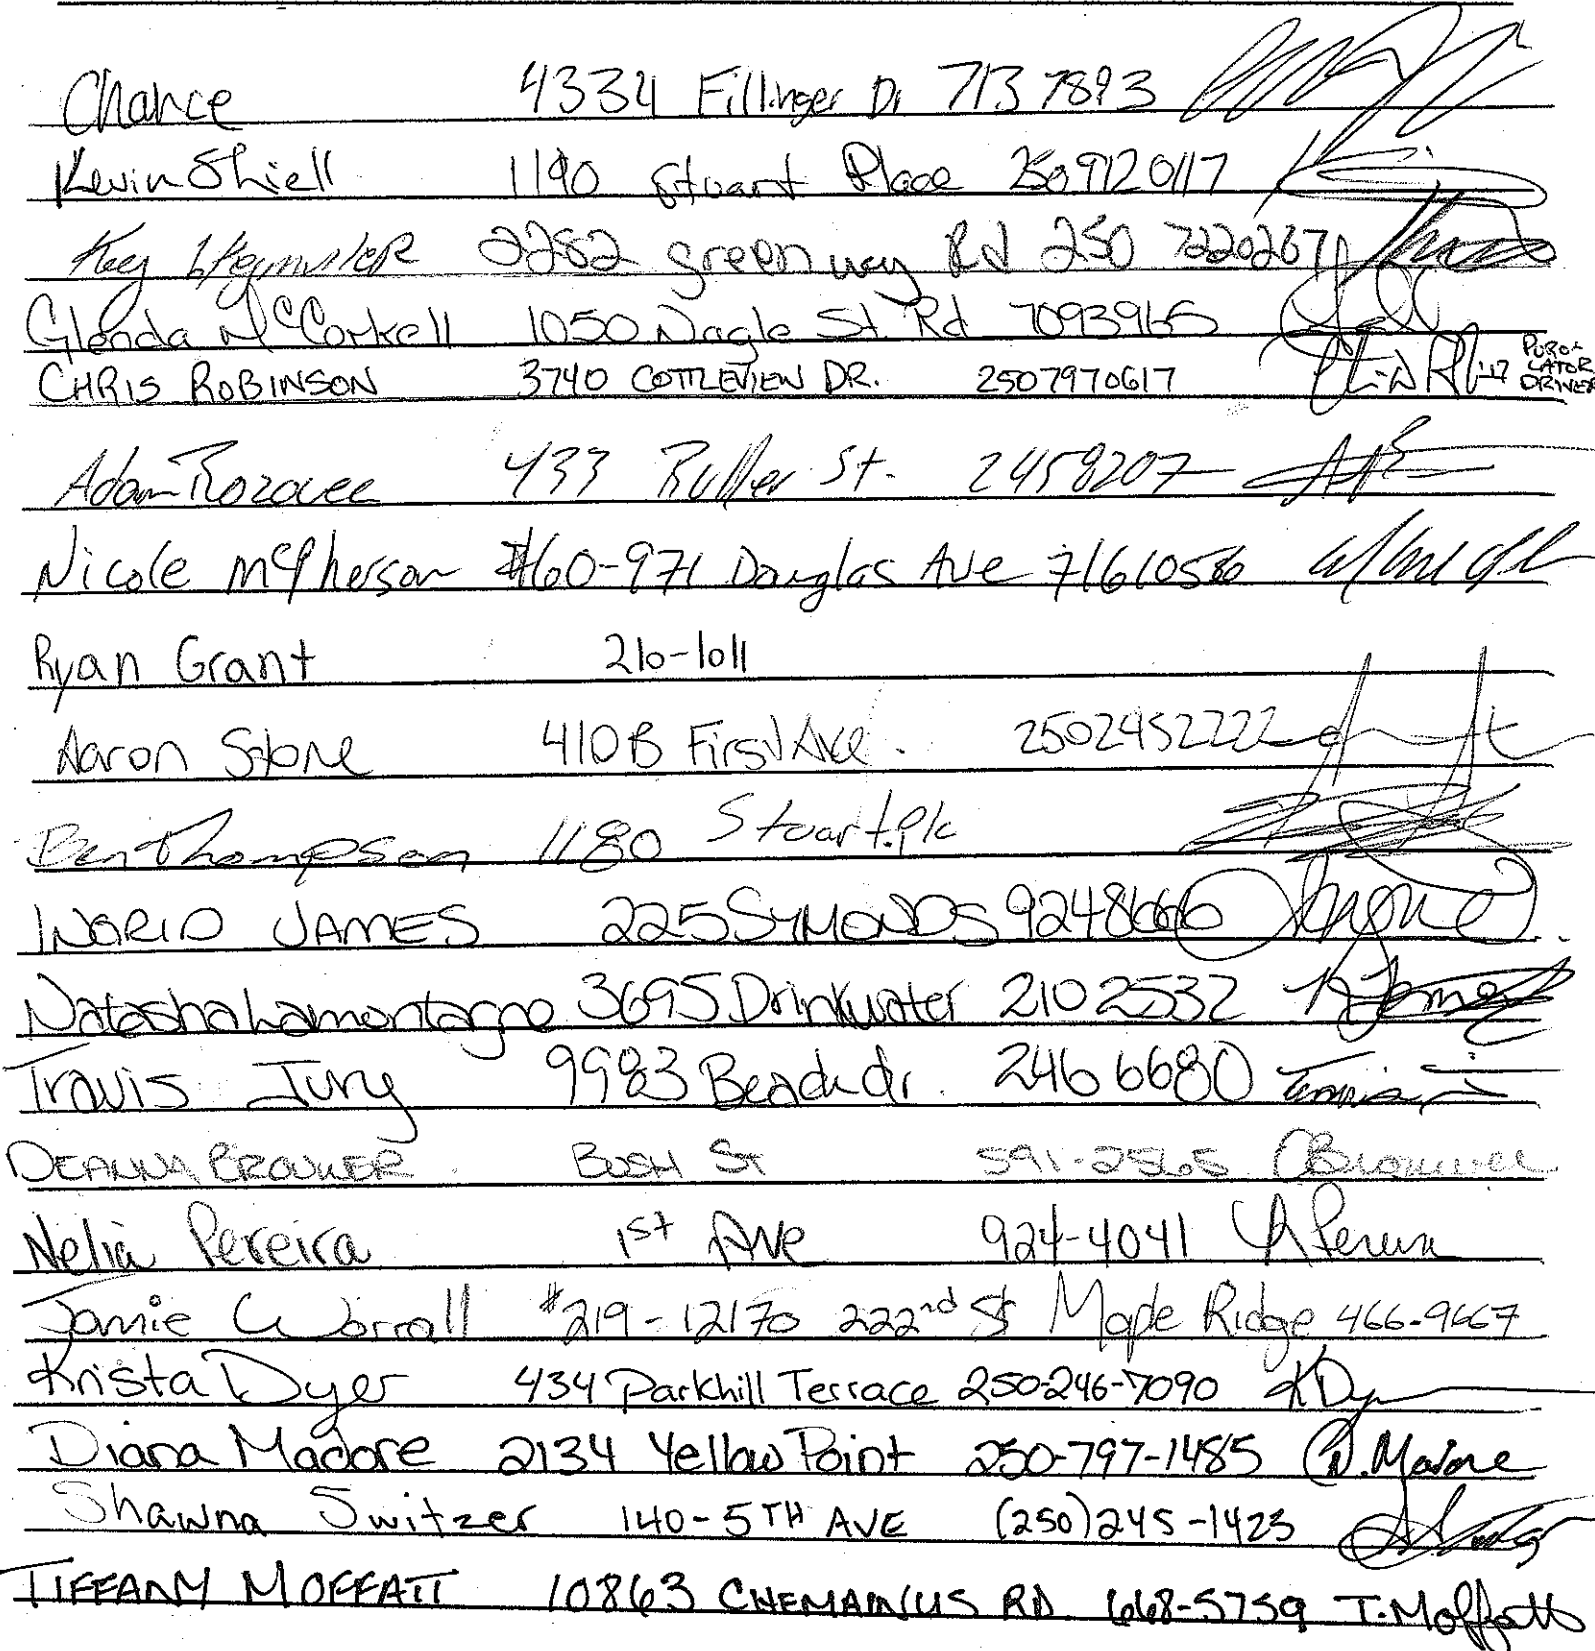 Chance 4334 Fillinger Dr 713 7893
Kevin Shiell 1190 Stuart Place 250 9120117
2282 greenway Rd 250 7220267
Glenda McCorkell 1050 Nagle St. Rd 7093965
CHRIS ROBINSON 3740 COTTLEVIEW DR. 2507970617 PUROLATOR DRIVER
Adam 433 St. 2458207
Nicole McPherson #60-971 Douglas Ave 7161056
Ryan Grant 210-1011
Aaron Stone 410B First Ave. 2502452222
Ben Thompson 1180 Stuart.plc
INGRID JAMES 225 SYMONDS 9248666
Natasha Lamontagne 3695 Drinkwater 210 2532
Travis Jury 9983 Beach dr. 246 6680
DEANNA BROUWER. BUSH St 591-2565
Nelia Pereira 1st Ave 924-4041
Jamie Worrall #219-12170 222nd St Maple Ridge 466-9667
Krista Dyer 434 Parkhill Terrace 250-246-7090 KDyer
Diana Madore 2134 Yellow Point 250-797-1485 D.Madore
Shawna Switzer 140-5TH AVE (250)245-1423
TIFFANY MOFFATT 10863 CHEMAINUS RD. 668-5759 T.Moffatt